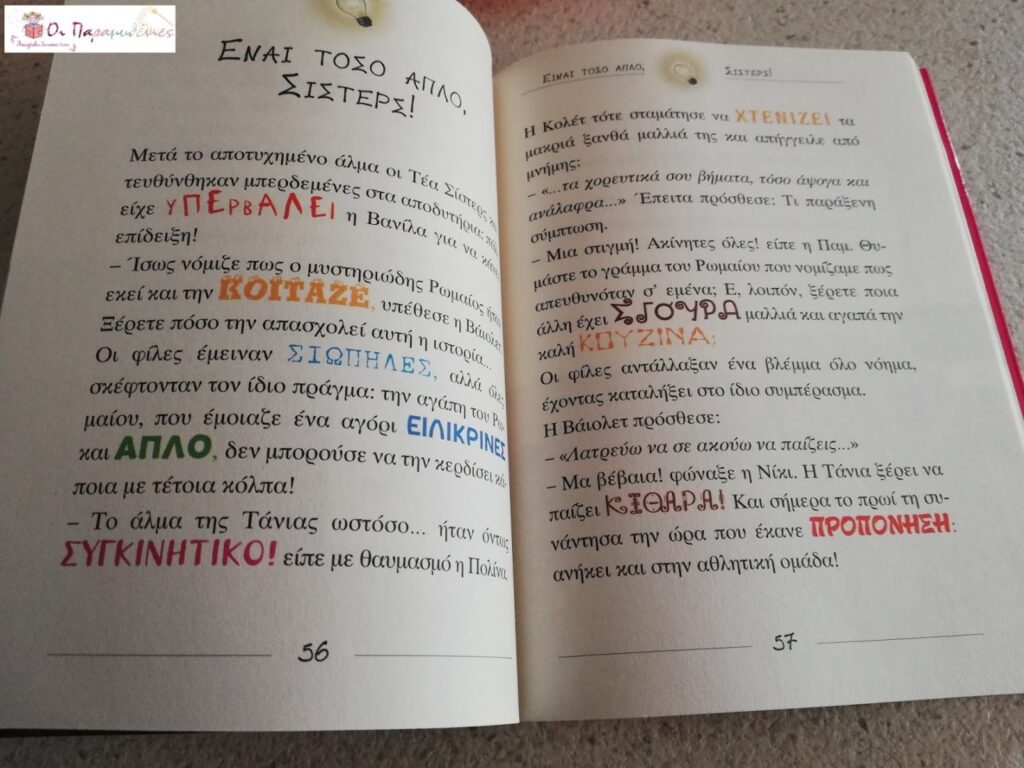 Οι Παραμυθένιες
ΕΙΝΑΙ ΤΟΣΟ ΑΠΛΟ,
ΣΙΣΤΕΡΣ!
Μετά το αποτυχημένο άλμα οι Τέα Σίστερς
τευθύνθηκαν μπερδεμένες στα αποδυτήρια:
είχε ΥΠΕΡΒΑΛΕΙ η Βανίλα για να κάνει
επίδειξη!
– Ίσως νόμιζε πως ο μυστηριώδης Ρωμαίος ήταν
εκεί και την ΚΟΙΤΑΖΕ, υπέθεσε η Βάιολετ.
Ξέρετε πόσο την απασχολεί αυτή η ιστορία...
Οι φίλες έμειναν ΣΙΩΠΗΛΕΣ, αλλά όλες
σκέφτονταν τον ίδιο πράγμα: την αγάπη του Ρω-
μαίου, που έμοιαζε ένα αγόρι ΕΙΛΙΚΡΙΝΕΣ
και ΑΠΛΟ, δεν μπορούσε να την κερδίσει κά-
ποια με τέτοια κόλπα!
– Το άλμα της Τάνιας ωστόσο... ήταν όντως
ΣΥΓΚΙΝΗΤΙΚΟ! είπε με θαυμασμό η Πολίνα.
56
ΕΙΝΑΙ ΤΟΣΟ ΑΠΛΟ, ΣΙΣΤΕΡΣ!
Η Κολέτ τότε σταμάτησε να ΧΤΕΝΙΖΕΙ τα
μακριά ξανθά μαλλιά της και απήγγειλε από
μνήμης:
– «...τα χορευτικά σου βήματα, τόσο άψογα και
ανάλαφρα...» Έπειτα πρόσθεσε: Τι παράξενη
σύμπτωση.
– Μια στιγμή! Ακίνητες όλες! είπε η Παμ. Θυ-
μάστε το γράμμα του Ρωμαίου που νομίζαμε πως
απευθυνόταν σ’ εμένα; Ε, λοιπόν, ξέρετε ποια
άλλη έχει ΣΓΟΥΡΑ μαλλιά και αγαπά την
καλή ΚΟΥΖΙΝΑ;
Οι φίλες αντάλλαξαν ένα βλέμμα όλο νόημα,
έχοντας καταλήξει στο ίδιο συμπέρασμα.
Η Βάιολετ πρόσθεσε:
– «Λατρεύω να σε ακούω να παίζεις...»
– Μα βέβαια! φώναξε η Νίκι. Η Τάνια ξέρει να
παίζει ΚΙΘΑΡΑ! Και σήμερα το πρωί τη συ-
νάντησα την ώρα που έκανε ΠΡΟΠΟΝΗΣΗ:
ανήκει και στην αθλητική ομάδα!
57